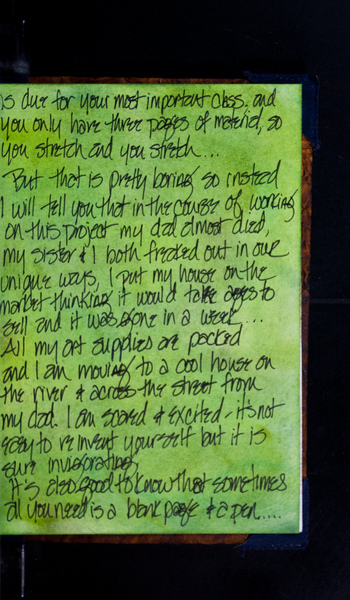 is due for your most important class, and
you only have three pages of material, so
you stretch and you stretch...
But that is pretty boring so instead
I will tell you that in the course of working
on this project my dad almost died,
my sister & I both freaked out in our
unique ways, I put my house on the
market thinking it would take ages to
sell and it was gone in a week....
All my art supplies are packed
and I am moving to a cool house on
the river & across the street from
my dad. I am scared & excited - it's not
easy to reinvent yourself but it is
sure invigorating.
It's also good to know that sometimes
all you need is a blank page & a pen....